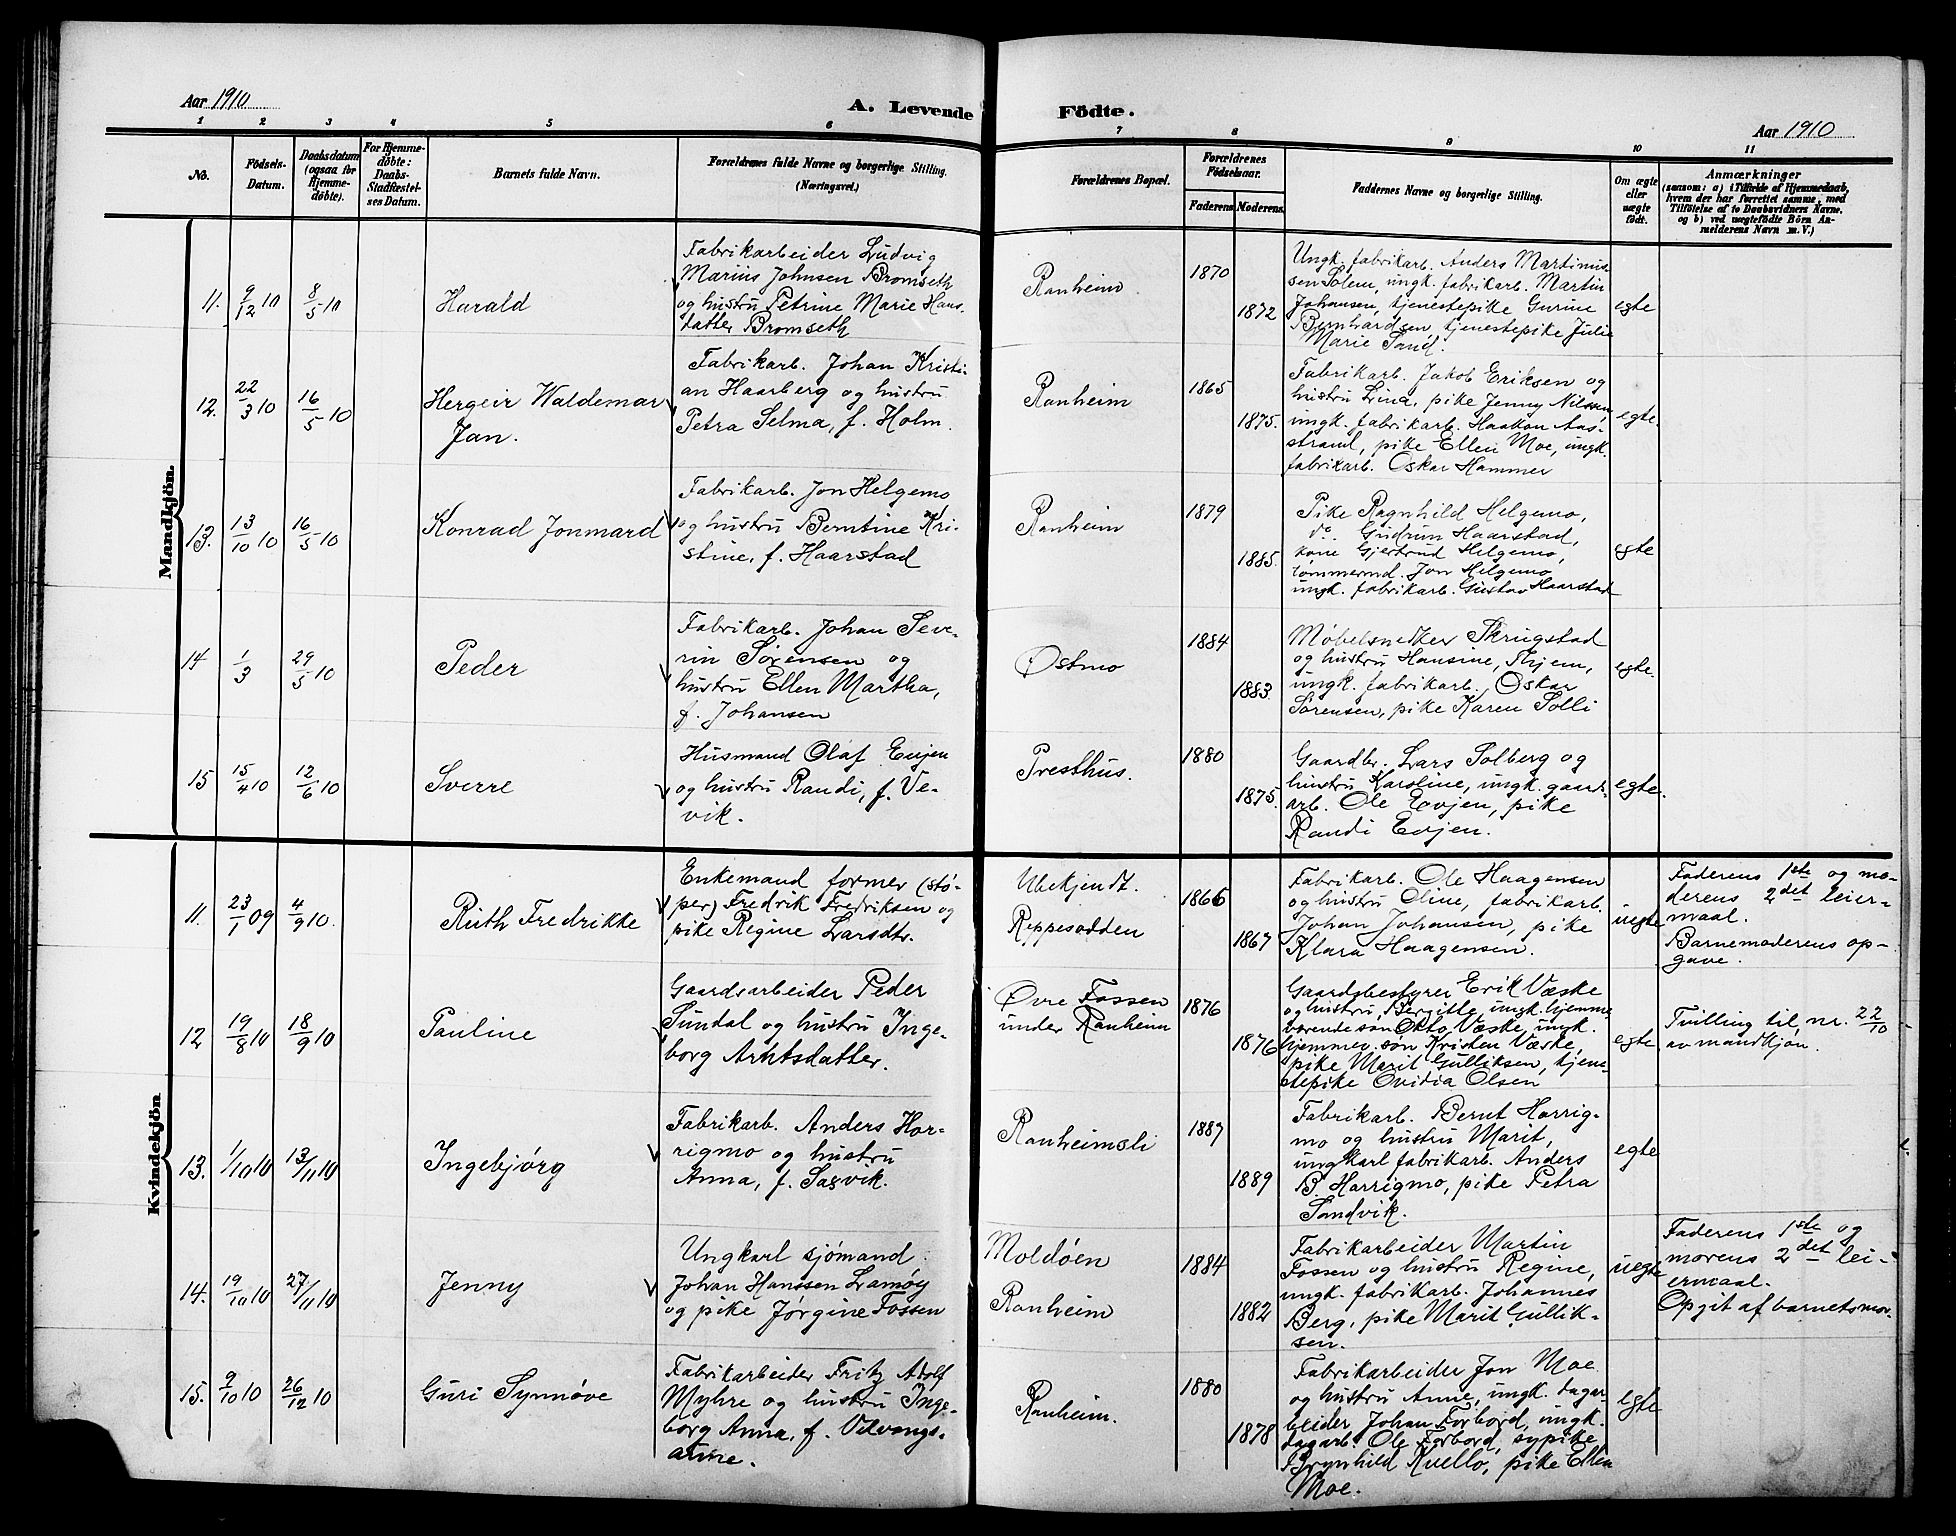 Aar 1910
A. Levende Födte.
Aar 1910
1 2 3 4 5 6 7 8 9 10 11
No.
Födsels-
Datum.
Daabsdatum
(ogsaa for
Hjemme-
døbte).
For Hjemme-
døbte:
Daabs-
Stadfæstel-
ses Datum.
Barnets fulde Navn.
Forældrenes fulde Navne og borgerlige Stilling.
(Næringsvei.)
Forældrenes Bopæl.
Forældrenes
Födselsaar.
Faderens Moderens.
Faddernes Navne og borgerlige Stilling.
Om ægte
eller
uægte
födt.
Anmærkninger
(saasom: a) i Tilfælde af Hjemmedaab,
hvem der har forrettet samme, med
Tilföielse af to Daabsvidners Navne.
og b) ved uægtefödte Börn An-
melderens Navn m. V.)
Mandkjön.
11.
9/12 10
8/5 10
Harald
Fabrikarbeider Ludvig
Marius Johnsen Bromseth
og hustru Petrine Marie Hans-
datter Bromseth
Ranheim
1870
1872
Ungk. fabrikarb. Anders Martinus-
sen Solem, ungk. fabrikarb. Martin
Johansen, tjenestepike Gurine
Bernhardsen, tjenestepike Julie
Marie Sand.
egte
12.
22/3 10
16/5 10
Hergeir Waldemar
Jan.
Fabrikarb. Johan Kristi-
an Haarberg og hustru
Petra Selma, f. Holm.
Ranheim
1865
1875.
Fabrikarb. Jakob Eriksen og
hustru Lina, pike Jenny Nilssen,
ungk. fabrikarb. Haakon Aas-
strand, pike Ellen Moe, ungk.
fabrikarb. Oskar Hammer
egte.
13.
13/10 10
16/5 10
Konrad Jonmard
Fabrikarb. Jon Helgemo
og hustru Berntine Kri-
stine, f. Haarstad
Ranheim
1879
1885.
Pike Ragnhild Helgemo,
do. Gudrun Haarstad,
kone Gjertrud Helgemo,
tømmermd. Jon Helgemo,
ungk. fabrikarb. Gustav Haarstad
egte
14
1/3
29/5 10
Peder
Fabrikarb. Johan Seve-
rin Sørensen og
hustru Ellen Martha,
f. Johansen
Østmo
1884
1883.
Møbelsnedker Skrugstad
og hustru Hansine, Thjem,
ungk. fabrikarb. Oskar
Sørensen, pike Karen Solli
egte.
15
15/4 10
12/6 10
Sverre
Husmand Olaf Evjen
og hustru Randi, f. Ve-
vik.
Presthus.
1880
1875.
Gaardbr. Lars Solberg og
hustru Karoline, ungk. gaards-
arb. Ole Evjen, pike
Randi Evjen.
egte.
Kvindekjön
11.
23/1 09
4/9 10.
Ruth Fredrikke
Enkemand former (stø-
per) Fredrik Fredriksen og
pike Regine Larsdtr.
Ubekjendt.
Reppesodden
1866
1867
Fabrikarb. Ole Haagensen
og hustru Oline, fabrikarb.
Johan Johansen, pike
Klara Haagensen.
uegte
Faderens 1ste og mo-
derens 2det leier-
maal.
Barnemoderens op-
gave.
12
19/8 10
18/9 10
Pauline
Gaardsarbeider Peder
Sundal og hustru Inge-
borg Arntsdatter.
Øvre Fossen
under Ranheim
1876
1876
Gaardsbestyrer Erik Væske
og hustru Bergitte, ungk. hjemme-
værende søn Otto Væske, ungk.
hjemmev. søn Kristen Væske,
pike Marit Gulliksen, tjene-
stepike Ovidia Olsen
egte
Tvilling til nr. 22/10
av mandkjøn.
13.
1/10 10
13/11 10
Ingebjørg
Fabrikarb. Anders Hor-
rigmo og hustru
Anna, f. Sasvik.
Ranheimsli
1887
1889
Fabrikarb. Bernt Horrig-
mo og hustru Marit,
ungkarl fabrikarb. Anders
B. Horrigmo, pike Petra
Sandvik.
egte
14.
19/10 10
27/11 10
Jenny
Ungkarl sjømand
Johan Hanssen Lamøy
og pike Jørgine Fossen
Moldöen
Ranheim
1884
1882
Fabrikarbeider Martin
Fossen og hustru Regine,
ungk. fabrikarb. Johannes
Berg, pike Marit Gullik-
sen.
uegte
Faderens 1ste og
morens 2det lei-
ermaal.
Opgit af barnets mor.
15.
9/10 10
26/12 10
Guri Synnøve
Fabrikarbeider Fritz Adolf
Myhre og hustru Inge-
borg Anna, f. Vilvangs-
Ranheim.
1880
1878
Fabrikarbeider Jon Moe
og hustru Anne, ungk. dagar-
beider Johan Forbord, ungk.
dagarb. Ole Forbord, sypike
Brynhild Kvello, pike Ellen
Moe.
egte